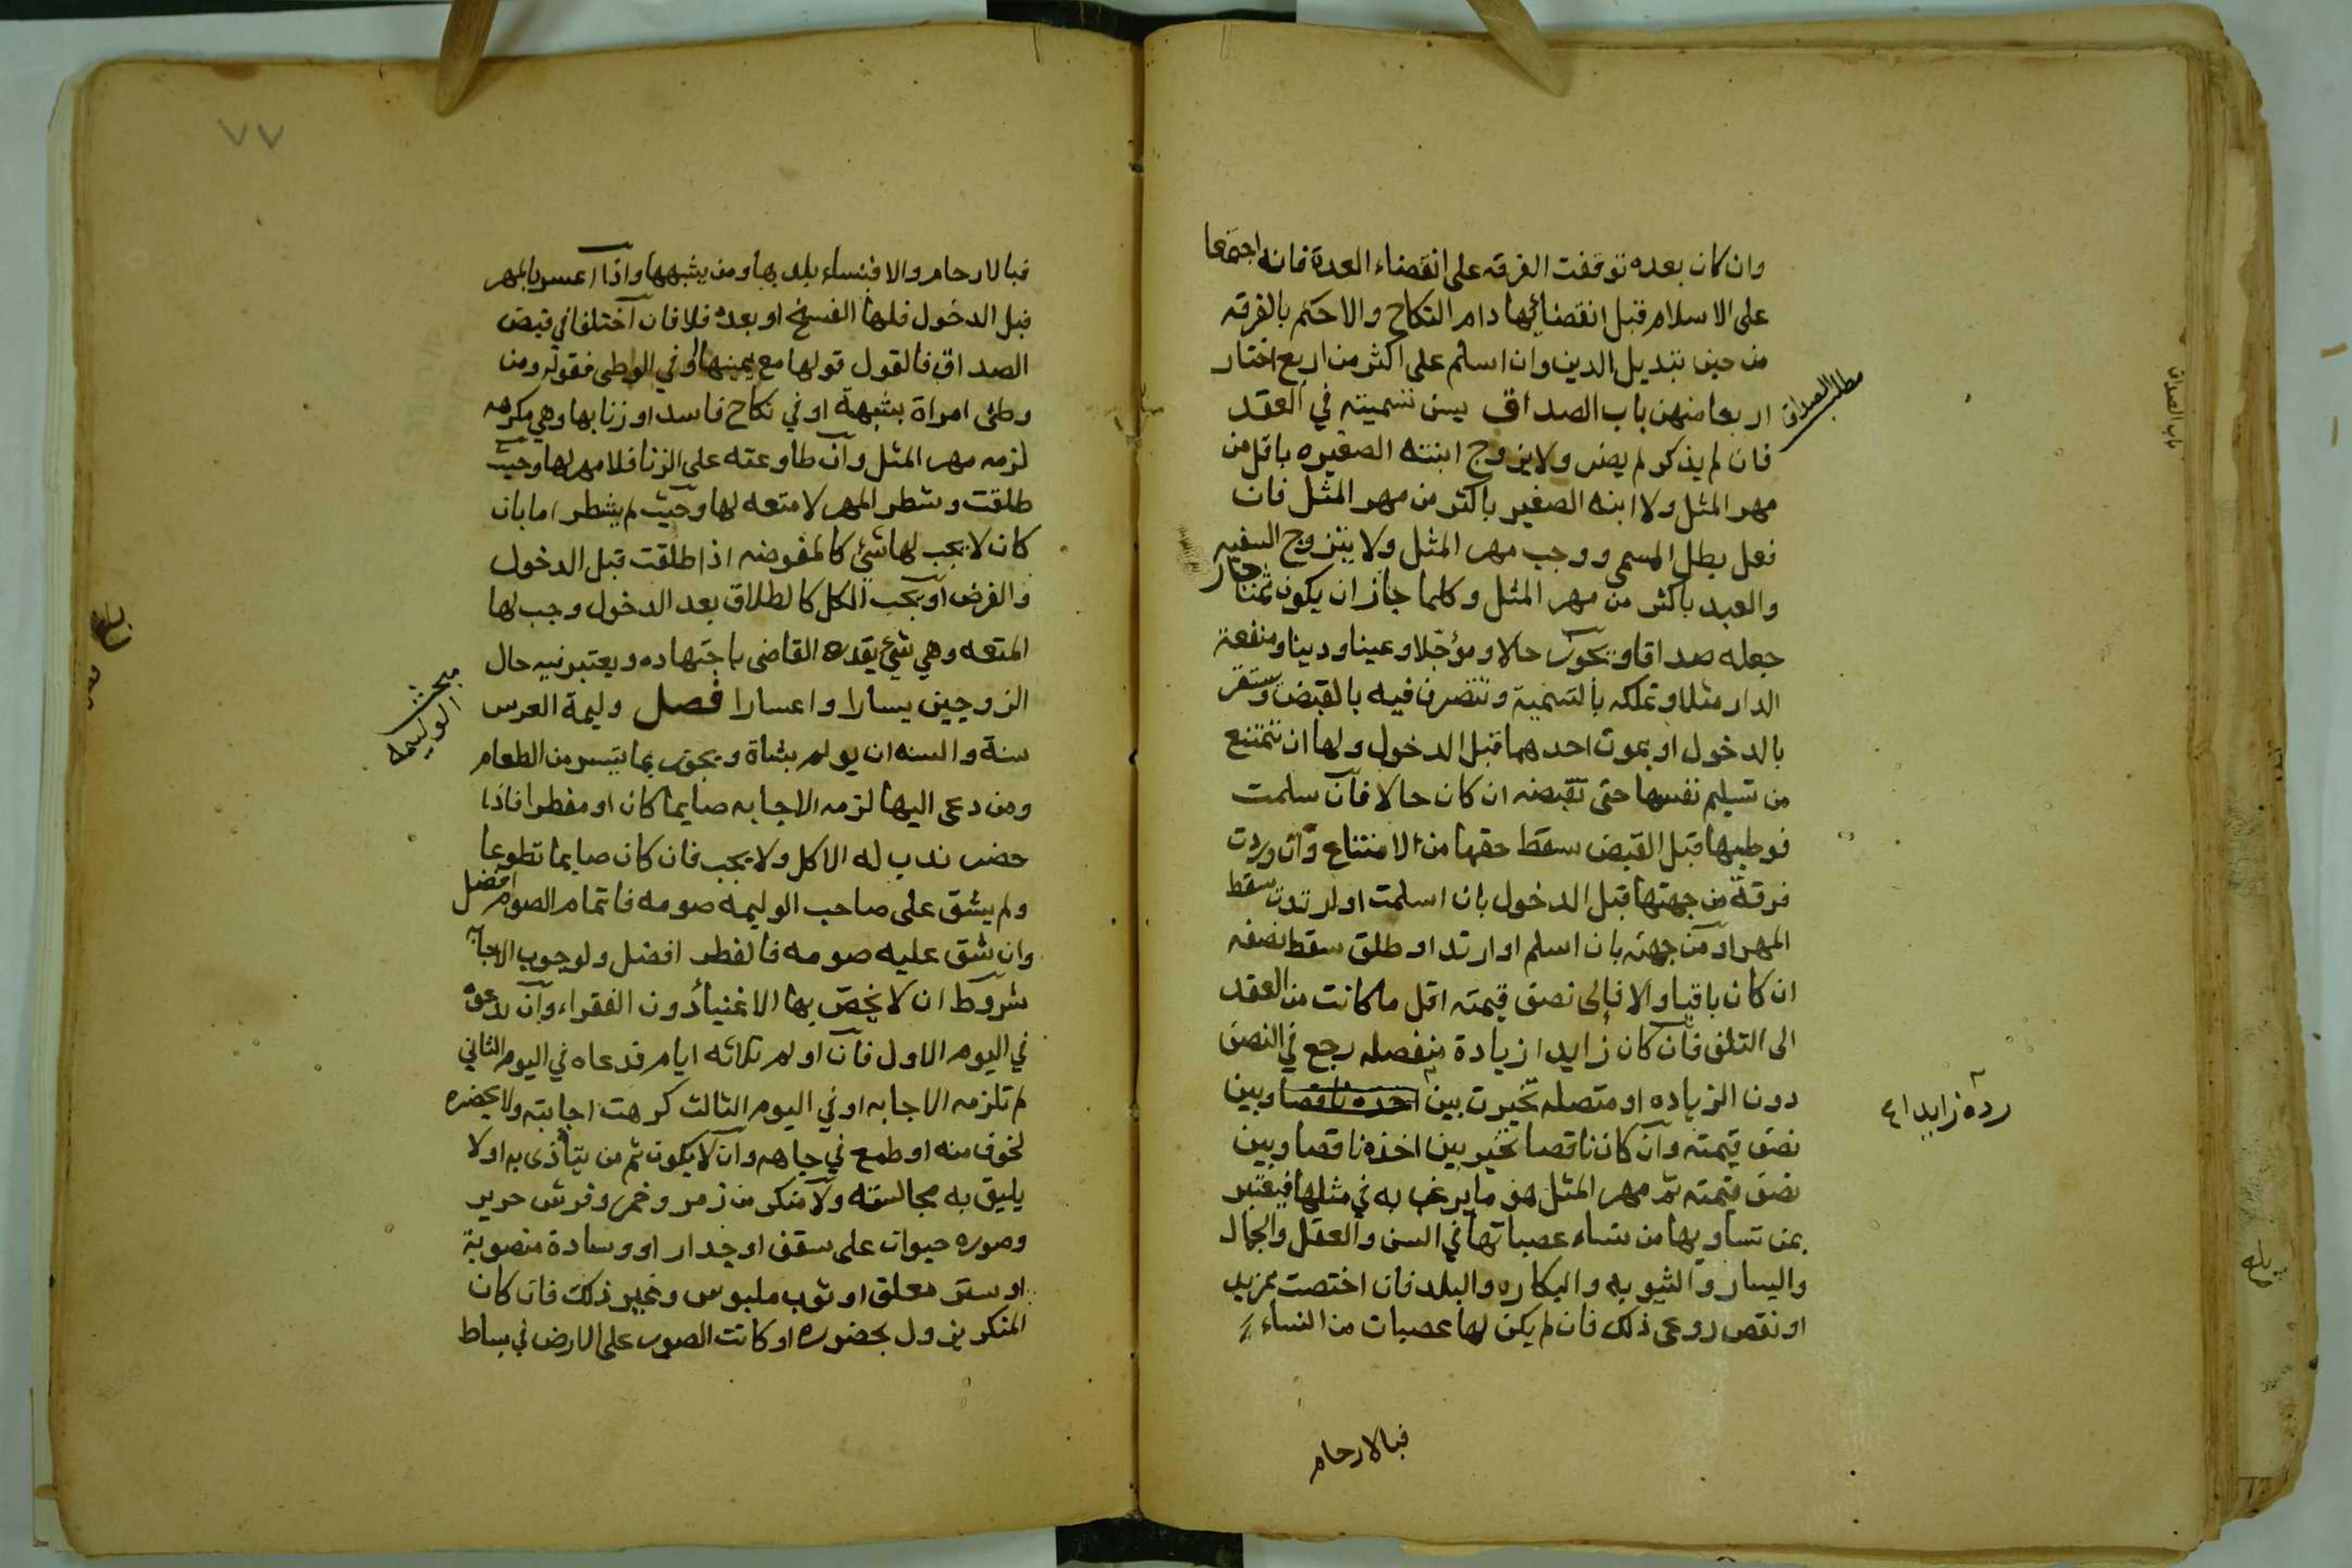 وان كان بعده توقفت الفرقه على انقضاء العدة فان اجتمعا
على الاسلام قبل انقضائها دام النكاح والا حكم بالفرقه
من حين تبديل الدين وان اسلم على اكثر من اربع اختار
اربعا منهن باب الصداق يسن تسميته في العقد
مطلب الصداق
فان لم يذكر لم يضر ولا يزوج ابنته الصغيره باقل من
مهر المثل ولا ابنه الصغير باكثر من مهر المثل فان
فعل بطل المسمى ووجب مهر المثل ولا يتزوج السفيه
والعبد باكثر من مهر المثل وكلما جاز ان يكون ثمنا جاز
جعله صداقا ويجوز حالا ومؤجلا وعينا ودينا ومنفعة
الدار مثلا وتملكه بالتسمية وتتصرف فيه بالقبض ويستقر
بالدخول او بموت احدهما قبل الدخول ولها ان تمتنع
من تسليم نفسها حتى تقبضه ان كان حالا فان سلمت
فوطيها قبل القبض سقط حقها من الامتناع وان وردت
فرقة من جهتها قبل الدخول بان اسلمت او ارتدت سقط
المهر او من جهته بان اسلم او ارتد او طلق سقط نصفه
ان كان باقيا والا فالى نصف قيمته اقل ما كانت من العقد
الى التلف فان كان زايدا زيادة منفصله رجع في النصف
دون الزياده او متصله تخيرت بين اخذه ناقصا وبين
رده زايدا
نصف قيمته وان كان ناقصا تخير بين اخذه ناقصا وبين
نصف قيمته ثم مهر المثل هو ما يرغب به في مثلها فيعتبر
بمن تساويها من نساء عصباتها في السن والعقل والجمال
واليسار والثيوبه والبكاره والبلد فان اختصت بمزيد
او نقص روعي ذلك فان لم يكن لها عصبات من النساء
فبالارحام
باب الصداق
٧٧
فبالارحام والا فبنساء بلدها ومن يشبهها واذا اعسر بالمهر
قبل الدخول فلها الفسخ او بعده فلا فان اختلفا في قبض
الصداق فالقول قولها مع يمينها او في الوطى فقوله ومن
وطئ امراة بشبهة او في نكاح فاسد او زنا بها وهي مكرهه
لزمه مهر المثل وان طاوعته على الزنا فلا مهر لها وحيث
طلقت وشطر المهر لا متعه لها وحيث لم يشطر اما بان
كان لا يجب لها شئ كالمفوضه اذا طلقت قبل الدخول
والفرض او يجب الكل كالطلاق بعد الدخول وجب لها
المتعه وهي شئ يقدره القاضى باجتهاده ويعتبر فيه حال
الزوجين يسارا واعسارا فصل وليمة العرس
مبحث الوليمه
سنة والسنه ان يولم بشاة ويجوز بما تيسر من الطعام
ومن دعى اليها لزمه الاجابه صايما كان او مفطرا فاذا
حضر ندب له الاكل ولا يجب فان كان صايما تطوعا
ولم يشق على صاحب الوليمه صومه فاتمام الصوم افضل
وان شق عليه صومه فالفطر افضل ولوجوب الاجابة
شروط ان لا يخص بها الاغنيا دون الفقراء وان يدعوه
في اليوم الاول فان اولم ثلاثه ايام فدعاه في اليوم الثاني
لم تلزمه الاجابه او في اليوم الثالث كرهت اجابته ولا يحضره
لخوف منه او طمع في جاهه وان لا يكون ثم من يتأذى به او لا
يليق به مجالسته ولا منكر من زمر وخمر وفرش حرير
وصوره حيوان على سقف او جدار او وسادة منصوبة
او ستر معلق او ثوب ملبوس وغير ذلك فان كان
المنكر يزول بحضوره او كانت الصور على الارض في بساط